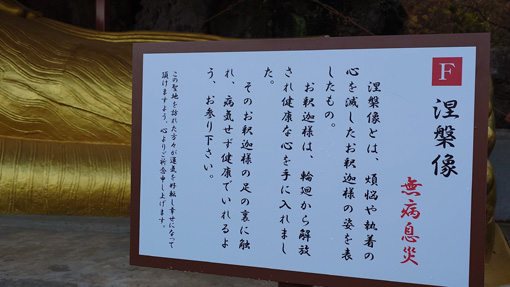 F
涅槃像
無病息災
涅槃像とは、煩悩や執着の
心を滅したお釈迦様の姿を表
したもの。
お釈迦様は、輪廻から解放
され健康な心を手に入れまし
た。
そのお釈迦様の足の裏に触
れ、病気せず健康でいれるよ
う、お参り下さい。
この聖地を訪れた方々が運気を好転し幸せになって
頂けますよう、心よりご祈念申し上げます。